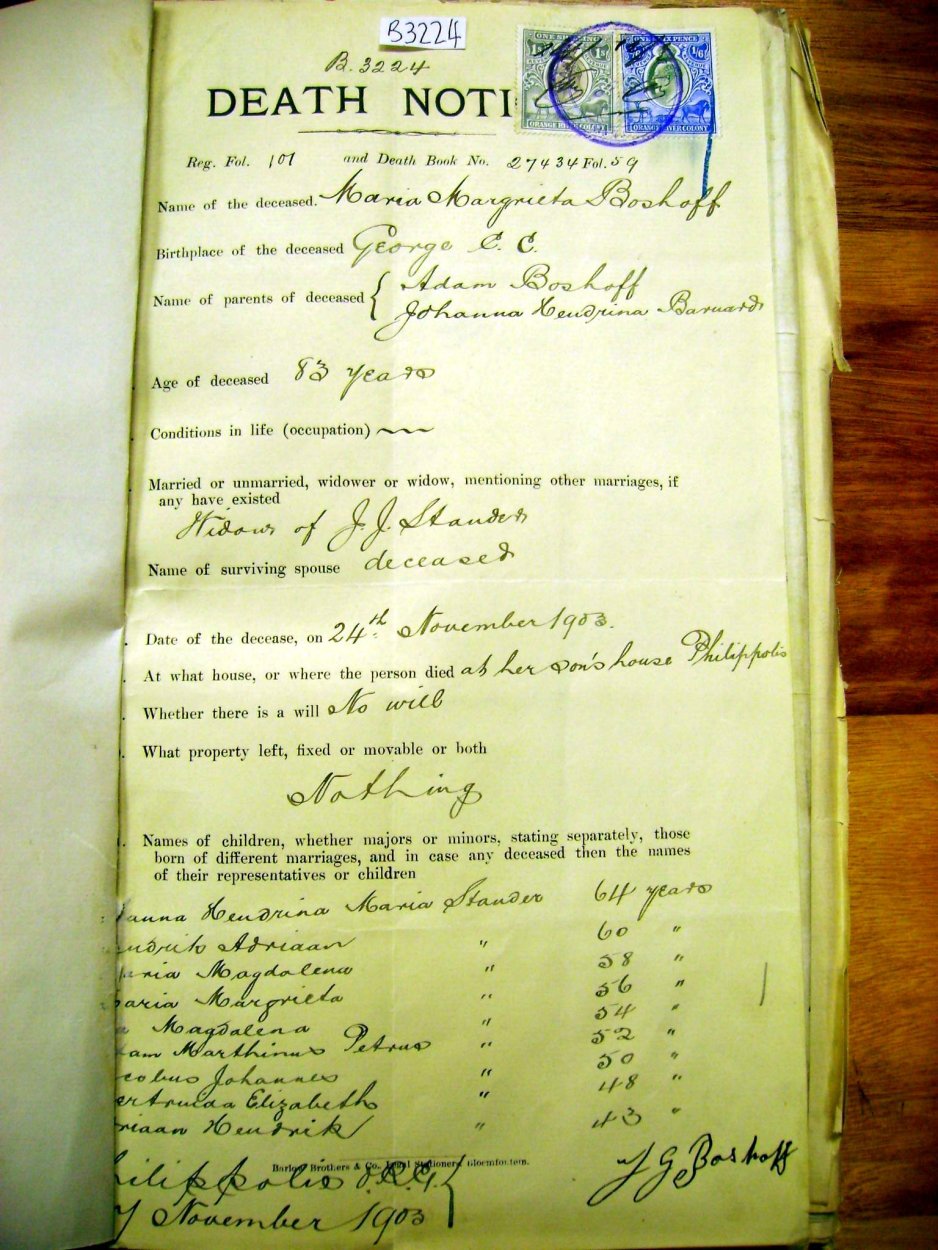 B3224
B. 3224
DEATH NOTI
ONE SHILLING
1s 1s
ORANGE RIVER COLONY
PENCE
1/6
ORANGE RIVER COLONY
Reg. Fol. 107 and Death Book No. 27434 Fol. 59
Name of the deceased. Maria Margrieta Boshoff
Birthplace of the deceased George C. C.
Name of parents of deceased { Adam Boshoff
Johanna Hendrina Barnard
Age of deceased 83 years
Conditions in life (occupation) ~~
Married or unmarried, widower or widow, mentioning other marriages, if
any have existed
Widow of J. J. Stander
Name of surviving spouse deceased
Date of the decease, on 24th November 1903.
At what house, or where the person died at her son's house Philippolis
Whether there is a will No will
What property left, fixed or movable or both
Nothing
Names of children, whether majors or minors, stating separately, those
born of different marriages, and in case any deceased then the names
of their representatives or children
anna Hendrina Maria Stander 64 years
ndrik Adriaan " 60 "
aria Magdalena " 58 "
aria Margrieta " 56 "
a Magdalena " 54 "
am Marthinus Petrus " 52 "
cobus Johannes " 50 "
ertruida Elizabeth " 48 "
riaan Hendrik " 43 "
Barlow Brothers & Co., Legal Stationers, Bloemfontein.
hilippolis O.R.C.
November 1903
J G Boshoff